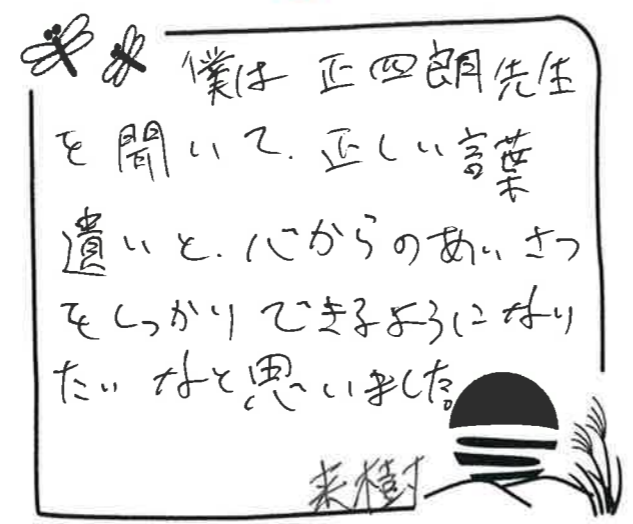 僕は 正四朗先生
を聞いて、正しい言葉
遣いと、心からのあいさつ
をしっかりできるようになり
たいなと思いました。
来樹